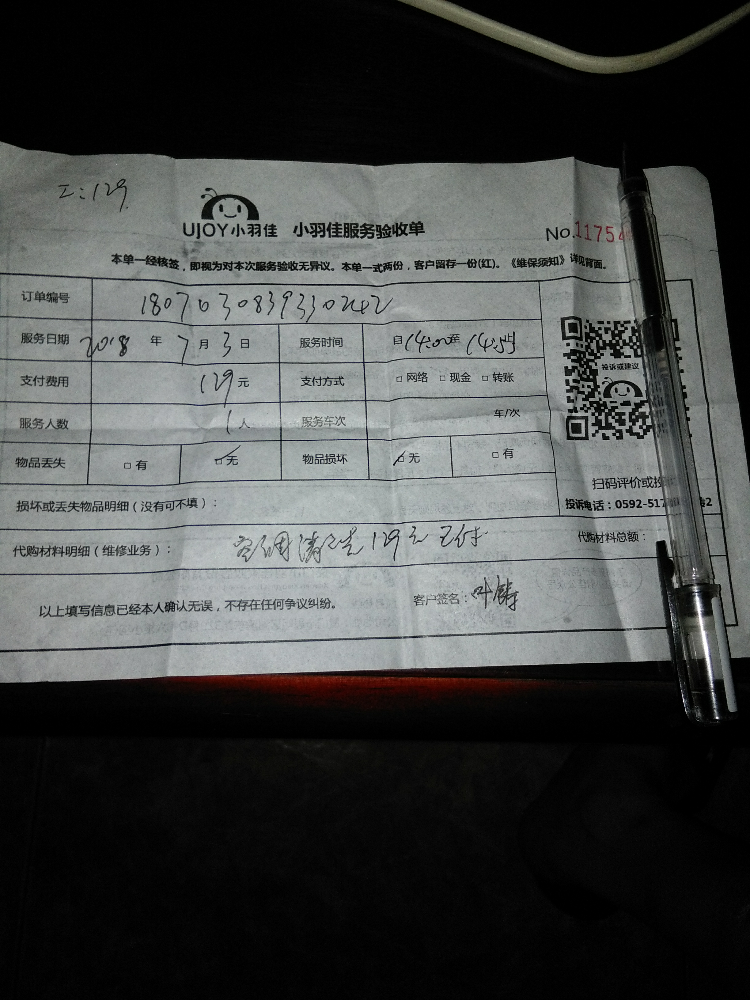 工:129
UJOY小羽佳 小羽佳服务验收单 No.1175
本单一经核签，即视为对本次服务验收无异议。本单一式两份，客户留存一份(红)。《维保须知》详见背面。
订单编号 1807030839330242
服务日期 2018 年 7 月 3 日 服务时间 自 14:00 至 14:54
支付费用 129 元 支付方式 □ 网络 □ 现金 □ 转账
投诉或建议
服务人数 1 人 服务车次 车/次
物品丢失 □ 有 □ 无 物品损坏 □ 无 □ 有
扫码评价或投
损坏或丢失物品明细（没有可不填）：
投诉电话：0592-517
代购材料明细（维修业务）： 空调清洗 129元 已付 代购材料总额：
以上填写信息已经本人确认无误，不存在任何争议纠纷。 客户签名：叶